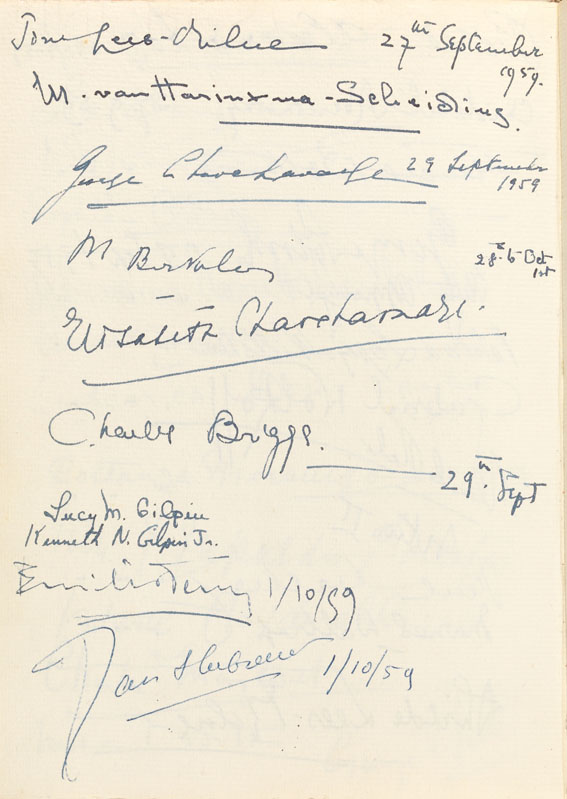 Lees-Milne 27th September
1959.
M. van Harinxma-Scheiding.
George Chavchavadze 29 September
1959
M
28th 6 Oct
1st
Elisabeth Chavchavadze.
Charles Briggs.
29th Sept
Lucy M. Gilpin
Kenneth N. Gilpin Jr.
Emilio Terry 1/10/59
1/10/59